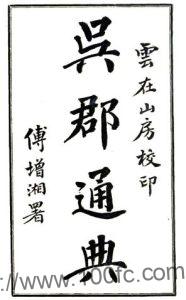 雲在山房校印
吳郡通典
傅增湘署
://www.100fc.com